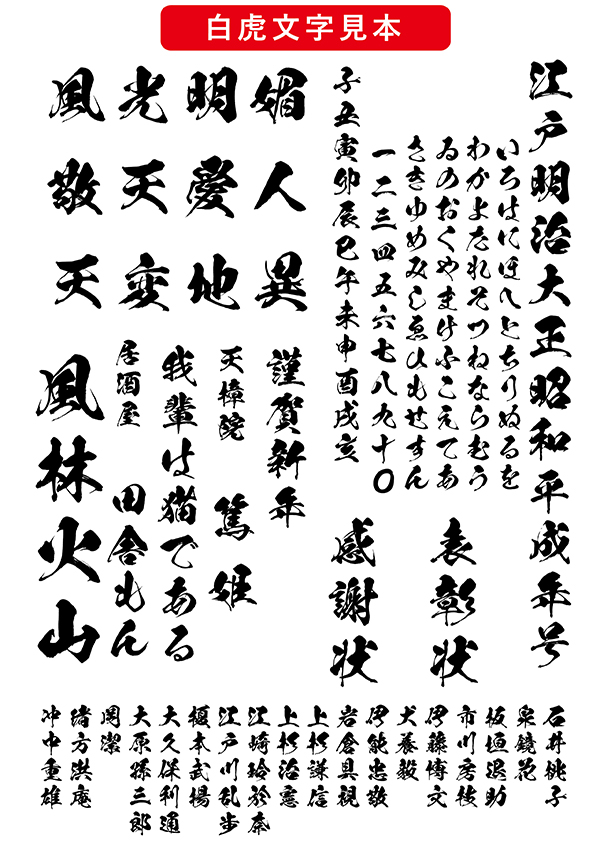 白虎文字見本
江戸明治大正昭和平成年号
いろはにほへとちりぬるを
わかよたれそつねならむう
ゐのおくやまけふこえてあ
さきゆめみしゑひもせすん
一二三四五六七八九十〇
子丑寅卯辰巳午未申酉戌亥
表彰状
感謝状
媚人異
明愛地
光天変
風敬天
謹賀新年
天樟院 篤姫
我輩は猫である
居酒屋 田舎もん
風林火山
石井桃子
泉鏡花
板垣退助
市川房枝
伊藤博文
犬養毅
伊能忠敬
岩倉具視
上杉謙信
上杉治憲
江崎玲於奈
江戸川乱歩
榎本武揚
大久保利通
大原孫三郎
岡潔
緒方洪庵
冲中重雄